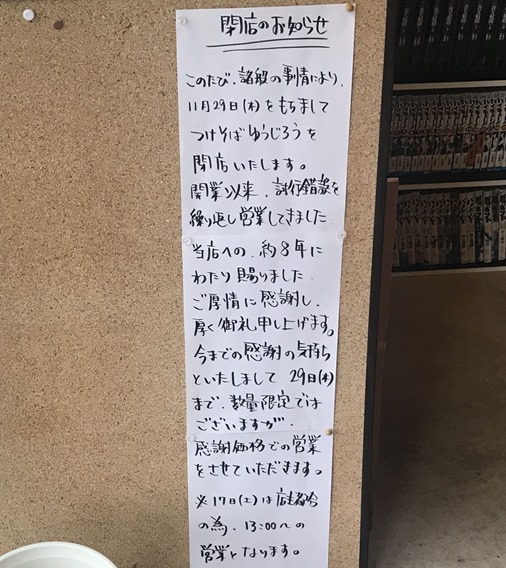 閉店のお知らせ
このたび、諸般の事情により、
11月29日(木)をもちまして
つけそば ゆうじろう を
閉店いたします。
開業以来、試行錯誤を
繰り返し営業してきました
当店への、約8年に
わたり賜りました
ご厚情に感謝し、
厚く御礼申し上げます。
今までの感謝の気持ち
といたしまして 29日(木)
まで、数量限定では
ございますが、
感謝価格での営業
をさせていただきます。
※17日(土)は店主都合
の為、13:00〜の
営業となります。